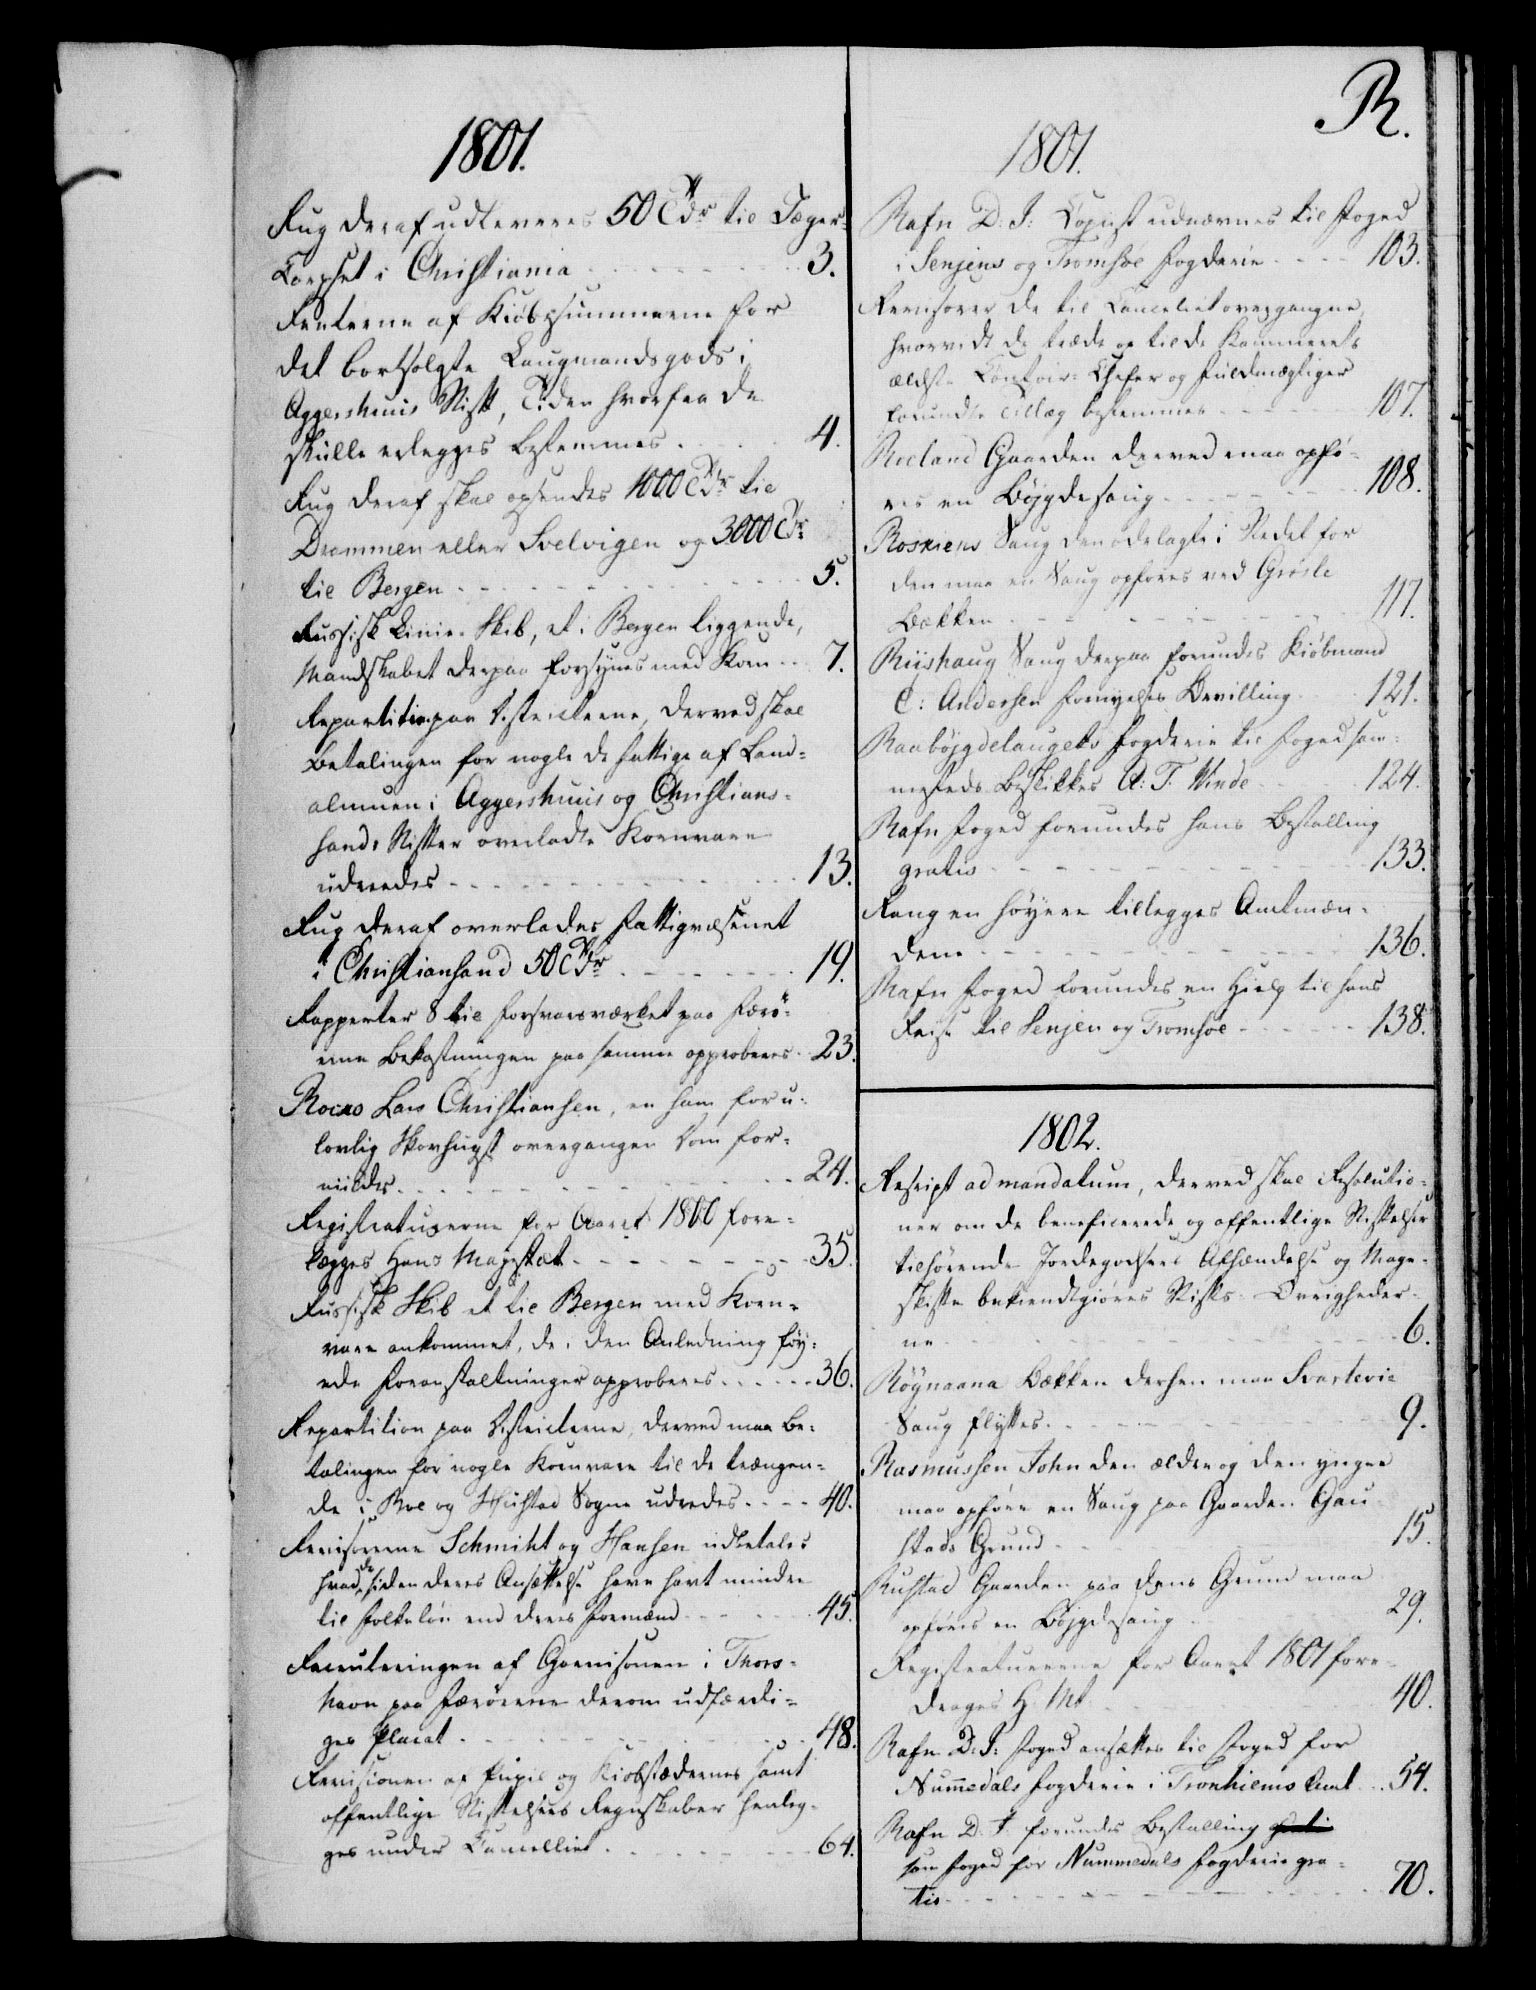 R.
1801.
Rug deraf udleveres 50 Tdr til Jæger-
Corpset i Christiania 3.
Renterne af Kiøbsummerne for
det bortsolgte Laugmandsgods i
Aggershuus Stift, Tiden hvorfra de
skulle erlegges bestemmes 4.
Rug deraf skal opsendes 1000 Tdr til
Drammen eller Svelvigen og 3000 Tdr
til Bergen 5.
Russisk Linie-Skib, et i Bergen liggende,
Mandskabet derpaa forsynes med Korn 7.
Repartition paa Districterne, derved skal
Betalingen for nogle de fattige af Land-
almuen i Aggershuus og Christians-
sands Stifter overladte Kornvare
udredes 13.
Rug deraf overlades Fattigvæsenet
i Christiansand 50 Tdr 19.
Rapperter 8 til Forsvarsværket paa Færö-
erne Bekostningen paa samme approberes 23.
Lars Christiansen, en ham for u-
lovlig Skovhugst overgangen Dom for-
mildes 24.
Registraturerne for Aaret 1800 fore-
lægges Hans Majestæt 35.
Russisk Skib et til Bergen med Korn-
vare ankommet, de i den Anledning föy-
ede Foranstaltninger approberes 36.
Repartition paa Districterne, derved maa Be-
talingen for nogle Kornvare til de trængen-
de i Boe og Hustad Sogne udredes 40.
Revisorerne Schmidt og Hansen udbetales
hvad de siden deres Ansættelse have havt mindre
til Folkeløn end deres Formænd 45.
Recruteringen af Garnisonen i Thors-
havn paa Færöerne derom udfærdi-
ges Placat 48.
Revisionen af Pupil og Kiøbstædernes samt
offentlige Stiftelsers Regnskaber henleg-
ges under Cancelliet 64.
1801.
Rafn D. J: Copist udnævnes til Foged
i Senjens og Tromsöe Fogderie 103.
Revisorer de til Cancelliet overgangne,
hvorvidt de træde op til de Kammerets
ældste Contoir-Chefer og Fuldmægtiger
forundte Tillæg bestemmes 107.
Roeland Gaarden derved maa opfö-
res en Böygdesaug 108.
Roskiens Saug den ödelagte i Stedet for
den maa en Saug opföres ved Grösle
Bækken 117.
Riishaug Saug derpaa forundes Kiöbmand
C: Andersen fornyelses Bevilling 121.
Raaböygdelaugets Fogderie til Foged sam-
mesteds beskikkes A: T. Winde 124.
Rafn Foged forundes hans Bestalling
gratis 133.
Rang en höyere tillegges Amtmæn-
dene 136.
Rafn Foged forundes en Hielp til hans
Reise til Senjen og Tromsöe 138.
1802.
Rescript ad mandatum, derved skal Resolutio-
ner om de beneficerede og offentlige Stiftelser
tilhørende Jordegodsers Afhændelse og Mage-
skifte bekiendtgiøres Stifts-Øvrigheder-
ne 6.
Röynaana Bækken dersen maa Svartevie
Saug flyttes 9.
Rasmussen John den ældre og den yngre
maa opföre en Saug paa Gaarden Gau-
stads Grund 15.
Rustad Gaarden paa dens Grund maa
opföres en Böygdesaug 29.
Registraturerne for Aaret 1801 fore-
drages H. Mt 40.
Rafn D: J: Foged ansættes til Foged for
Nummedals Fogderie i Tronhiems Amt 54.
Rafn D. J. forundes Bestalling
som Foged for Nummedals Fogderie gra-
tis 70.